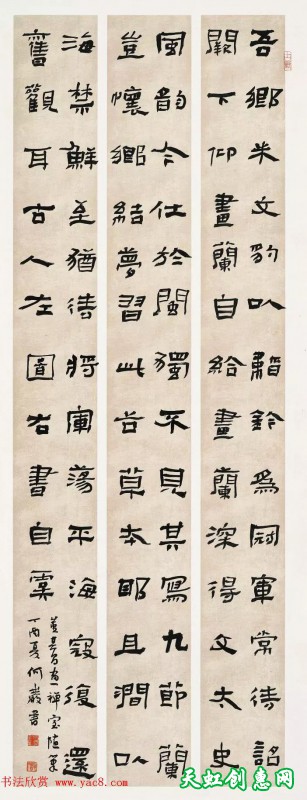 吾鄉米文豹以韜鈐為冠軍常待詔
闕下仰畫蘭自給畫蘭深得文太史
風韵今仕於閩獨不見其寫九節蘭
豈懷鄉結夢習此谷草本耶且澗以
海禁鮮至猶待將軍蕩平海寇復還
舊觀耳古人左圖右書自虞
禪室隨筆
夏何書
书法欣赏 www.yac8.com
天虹创意网